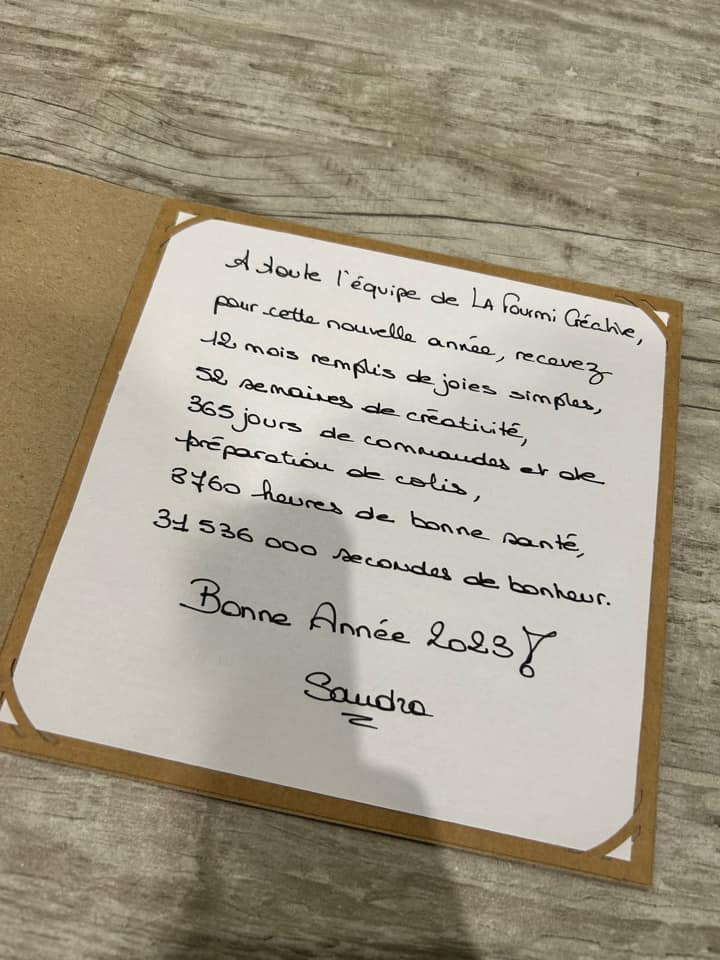 A toute l'équipe de LA Fourmi Créative,
pour cette nouvelle année, recevez
12 mois remplis de joies simples,
52 semaines de créativité,
365 jours de commandes et de
préparation de colis,
8760 heures de bonne santé,
31 536 000 secondes de bonheur.
Bonne Année 2023!
Sandra